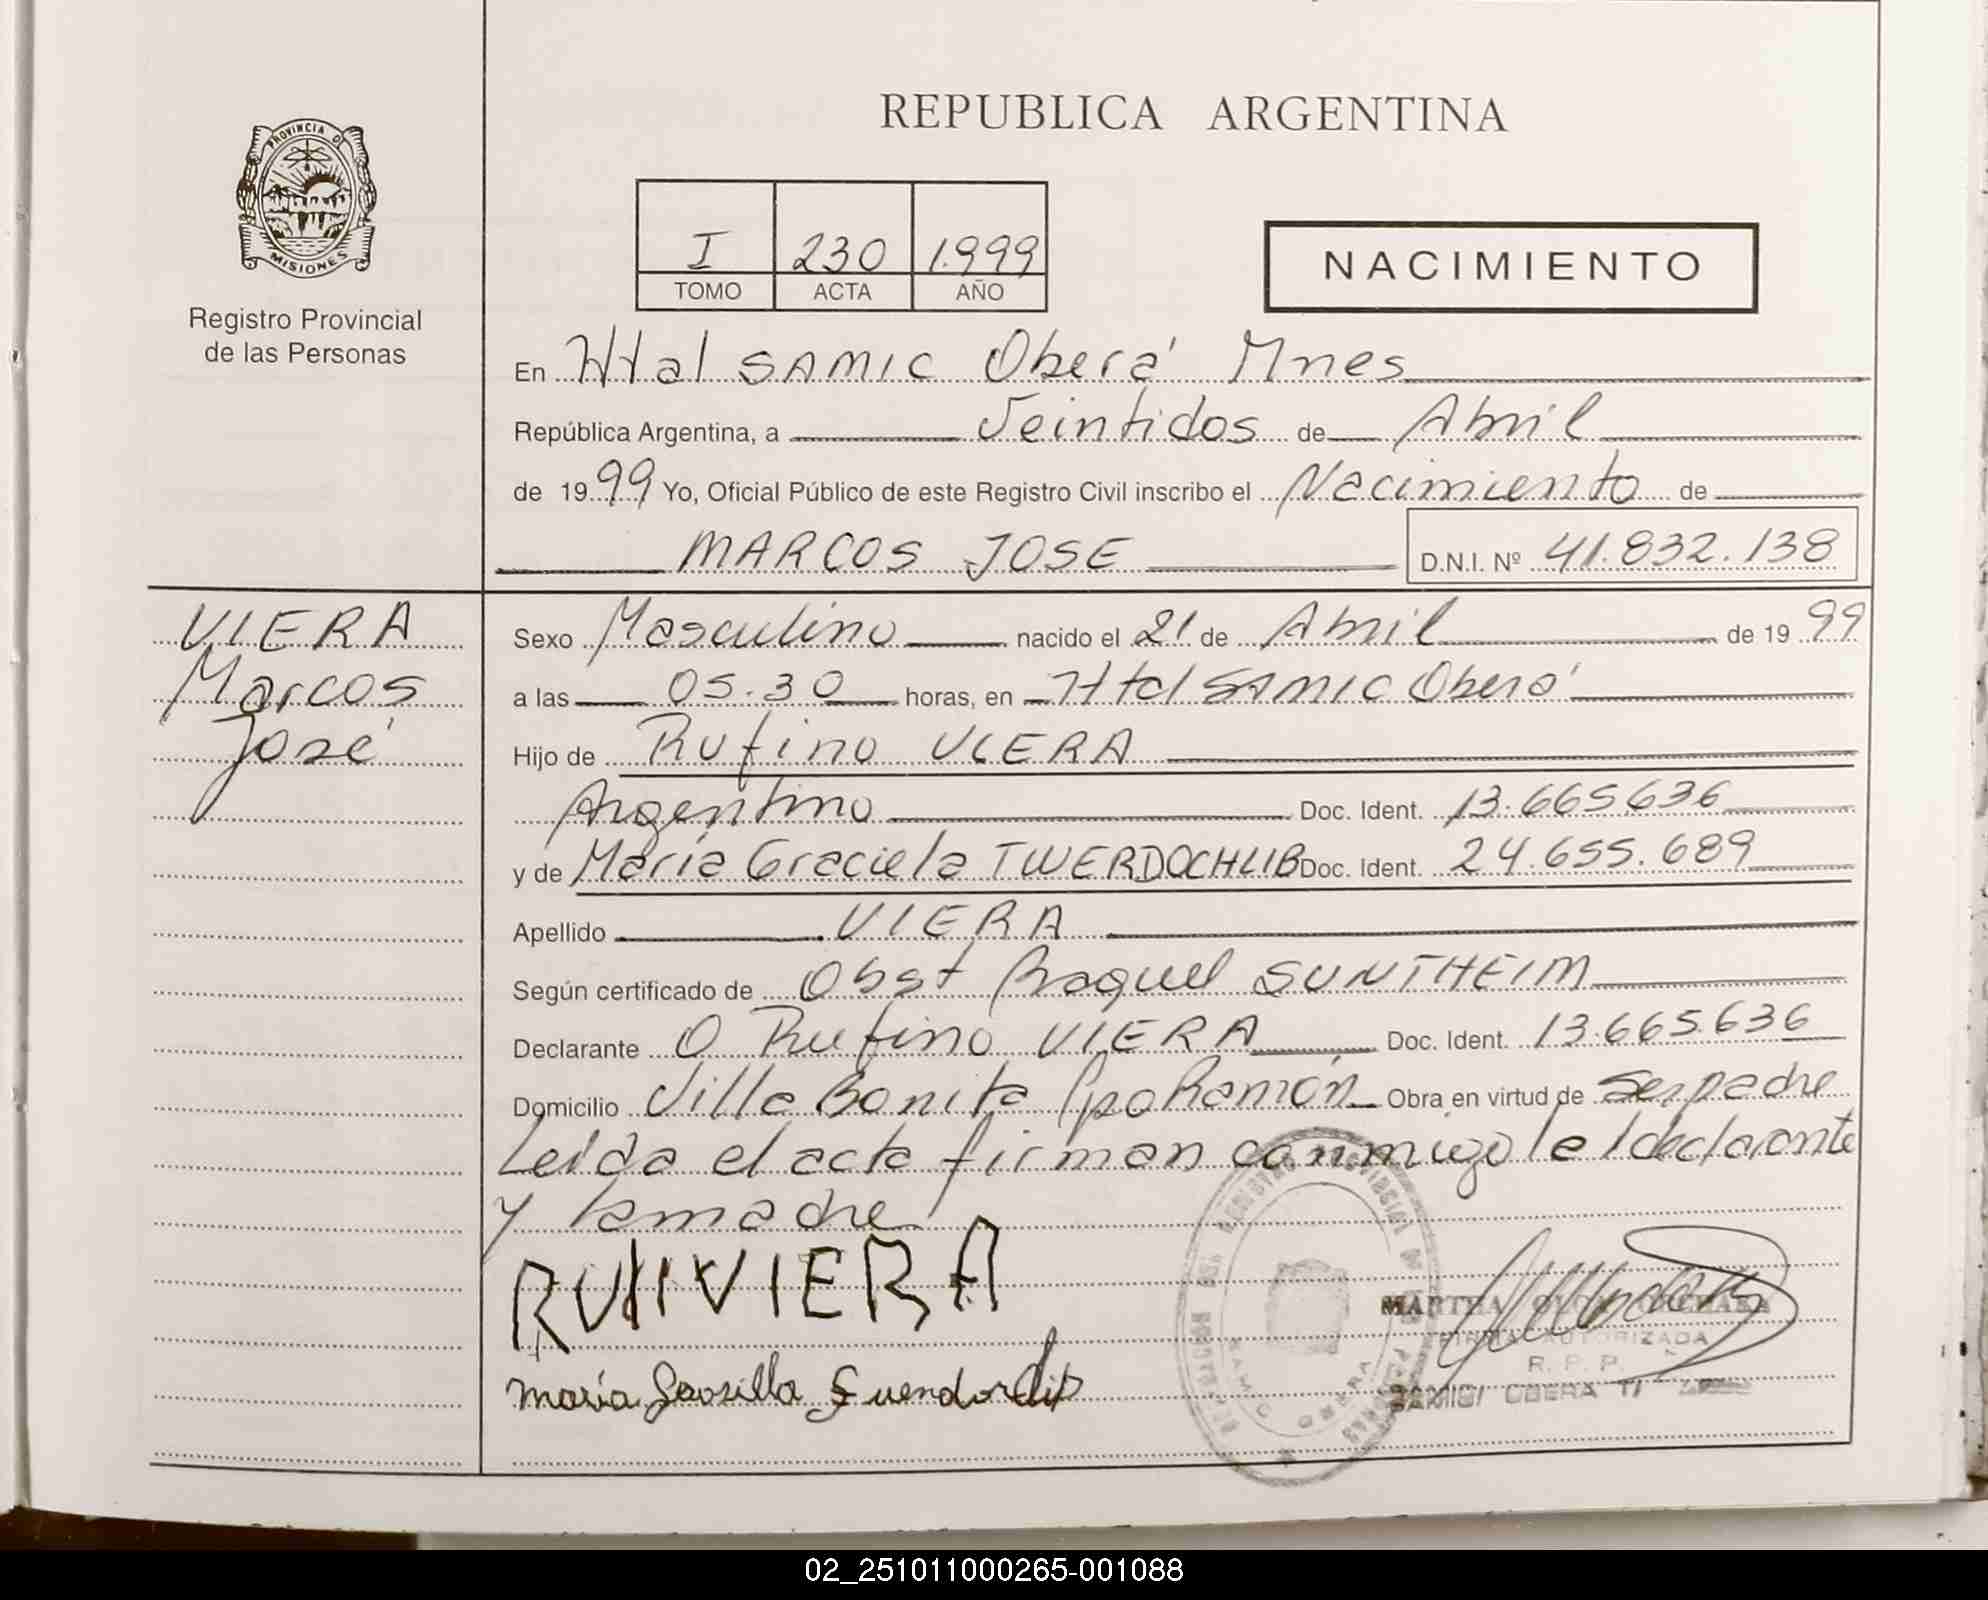 REPUBLICA ARGENTINA
PROVINCIA D
MISIONES
Registro Provincial
de las Personas
I 230 1.999
TOMO ACTA AÑO
NACIMIENTO
En Htal SAMIC Oberá Mnes
República Argentina, a Veintidos de Abril
de 1999 Yo, Oficial Público de este Registro Civil inscribo el Nacimiento de
MARCOS JOSE D.N.I. Nº 41.832.138
VIERA
Marcos
José
Sexo Masculino nacido el 21 de Abril de 1999
a las 05.30 horas, en Htal SAMIC Oberá
Hijo de Rufino VIERA
Argentino Doc. Ident. 13.665.636
y de María Graciela TWERDOCHLIB Doc. Ident. 24.655.689
Apellido VIERA
Según certificado de Obst Raquel SUNTHEIM
Declarante O Rufino VIERA Doc. Ident. 13.665.636
Domicilio Villa Bonita Cpo Ramón Obra en virtud de Ser padre
Leida el acta firman conmigo el declarante
y la madre
RUFIVIERA
María
MARTHA
FIRMA AUTORIZADA
R. P. P.
OBERA
02_251011000265-001088